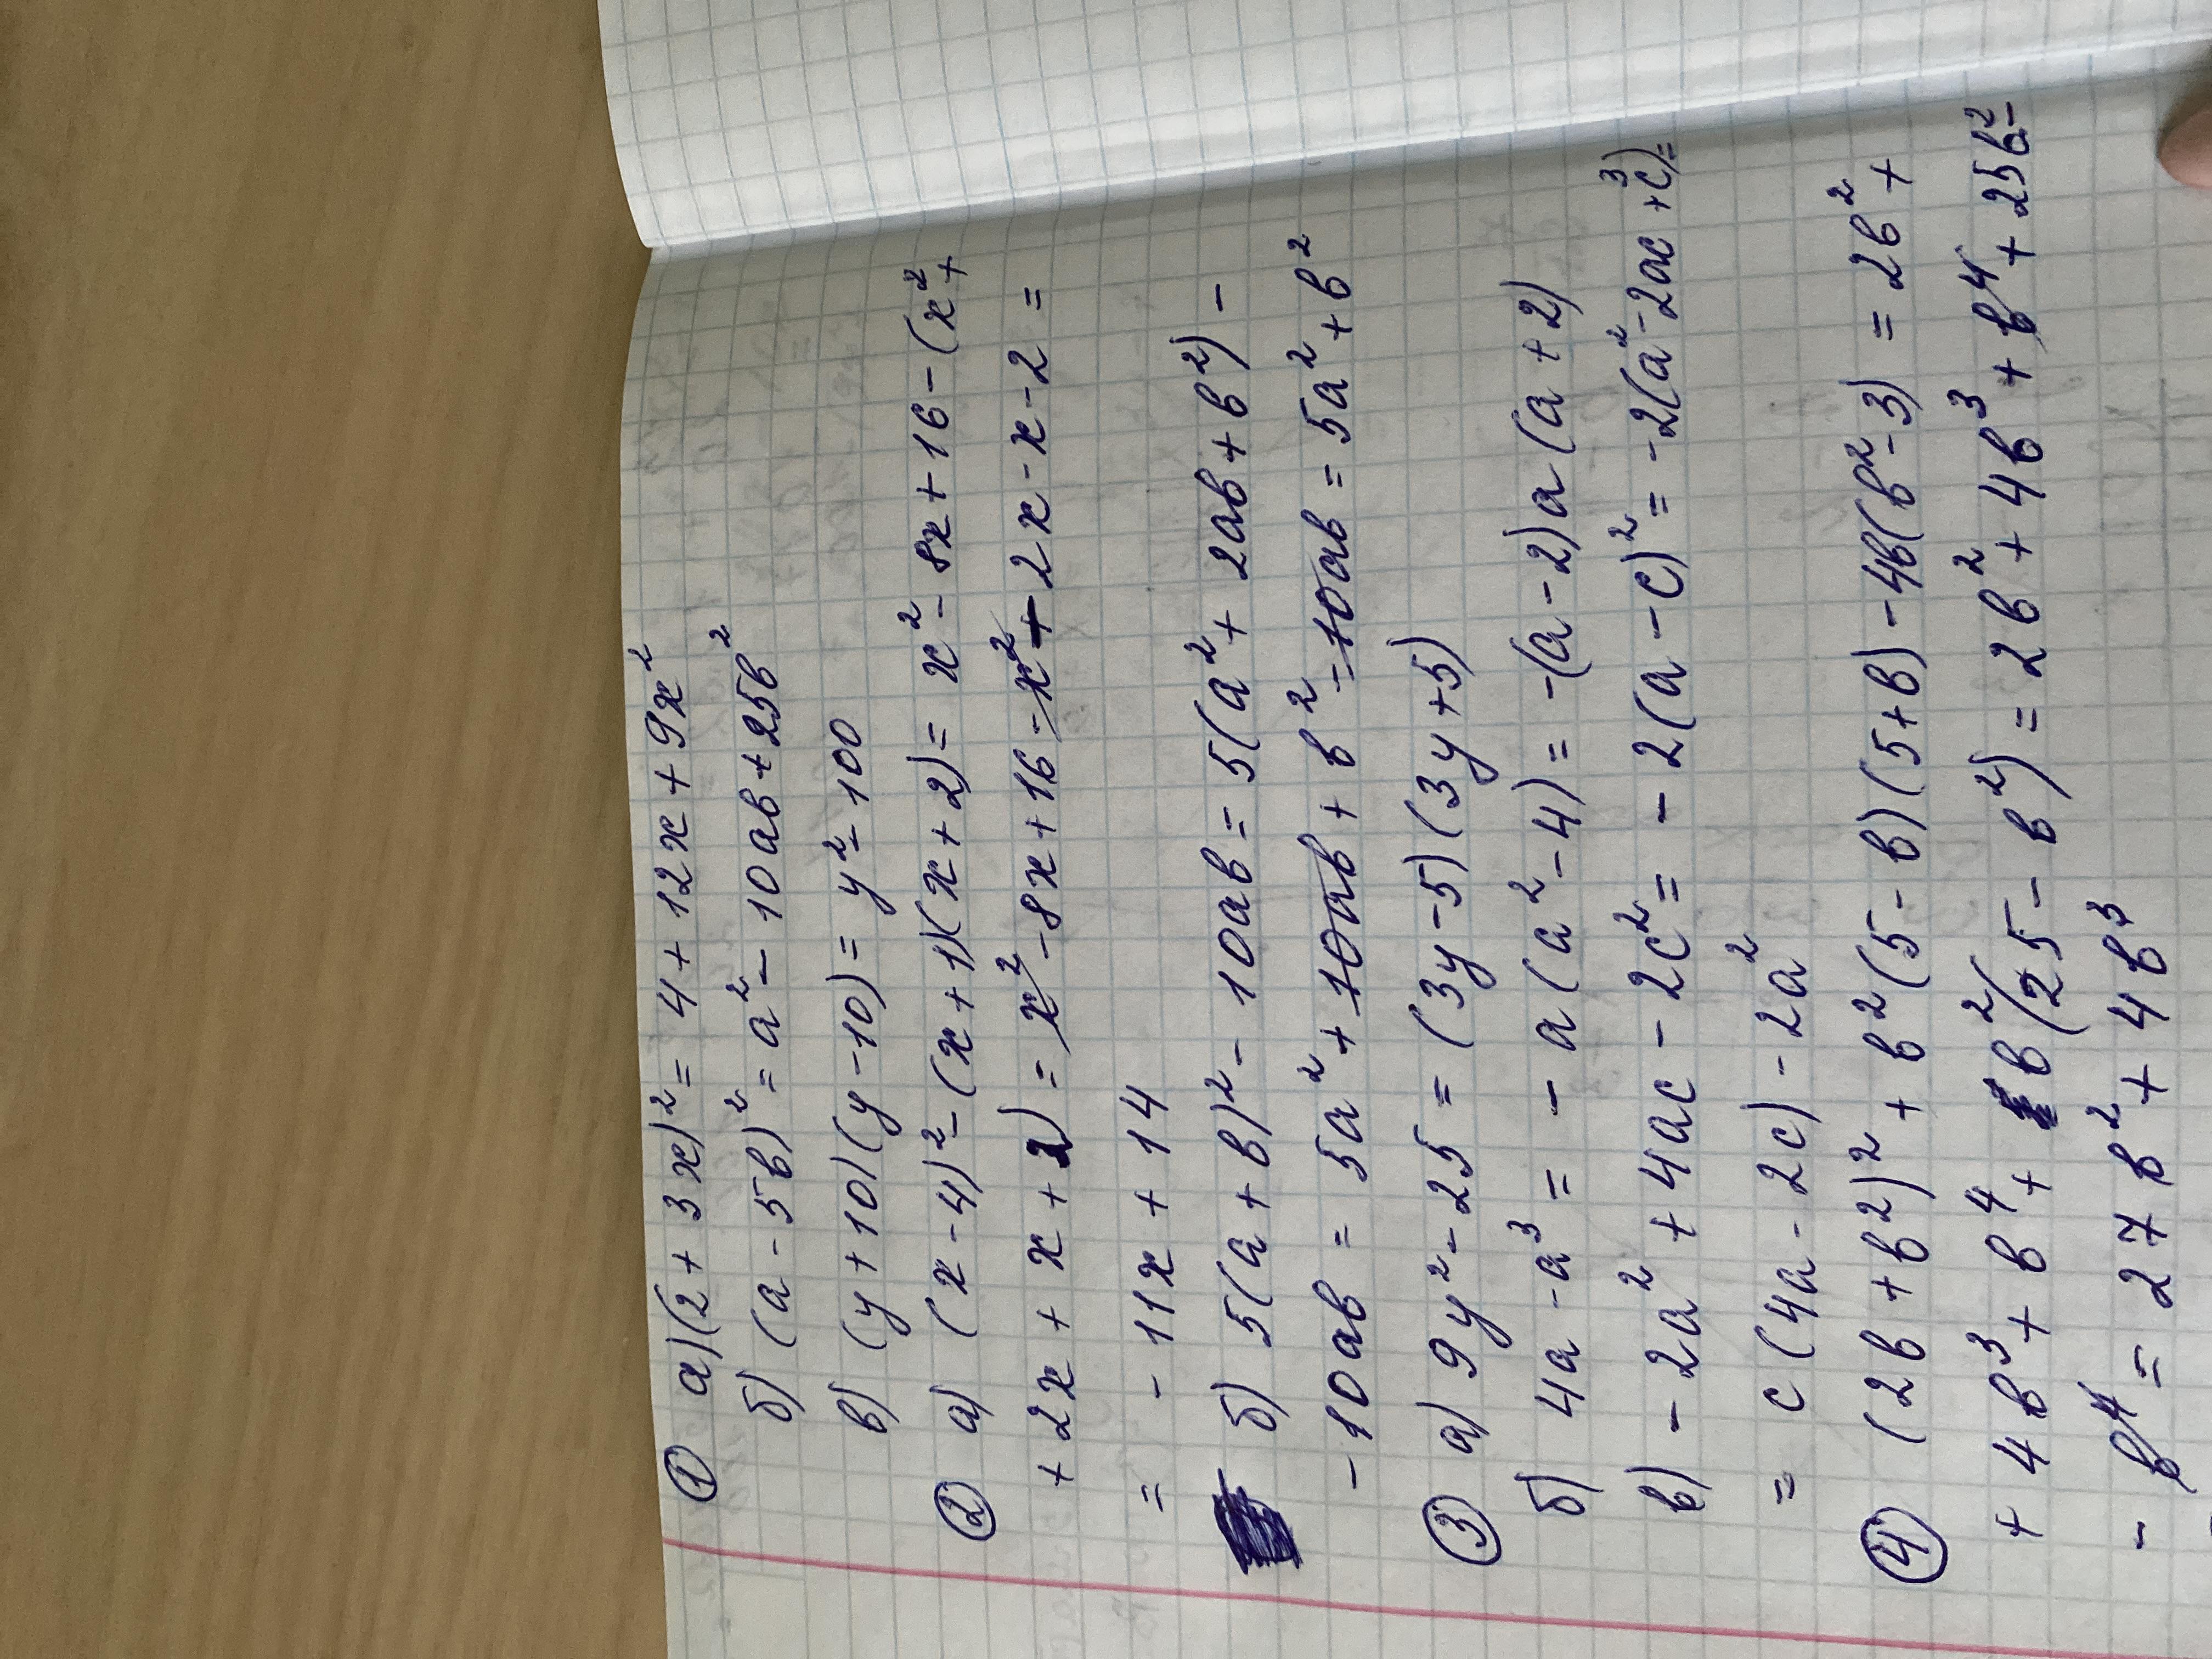 ① а) (2 + 3x)² = 4 + 12x + 9x²
б) (a - 5b)² = a² - 10ab + 25b²
в) (y + 10)(y - 10) = y² - 100
② а) (x - 4)² - (x + 1)(x + 2) = x² - 8x + 16 - (x² +
+ 2x + x + 2) = x² - 8x + 16 - x² - 2x - x - 2 =
= - 11x + 14
б) 5(a + b)² - 10ab = 5(a² + 2ab + b²) -
- 10ab = 5a² + 10ab + b² - 10ab = 5a² + b²
③ а) 9y² - 25 = (3y - 5)(3y + 5)
б) 4a - a³ = - a(a² - 4) = -(a - 2)a(a + 2)
в) - 2a² + 4ac - 2c² = - 2(a - c)² = - 2(a² - 2ac + c³) =
= c(4a - 2c) - 2a²
④ (2b + b²)² + b²(5 - b)(5 + b) - 4b(b² - 3) = 2b² +
+ 4b³ + b⁴ + b²(25 - b²) = 2b² + 4b³ + b⁴ + 25b² -
- b⁴ = 27b² + 4b³